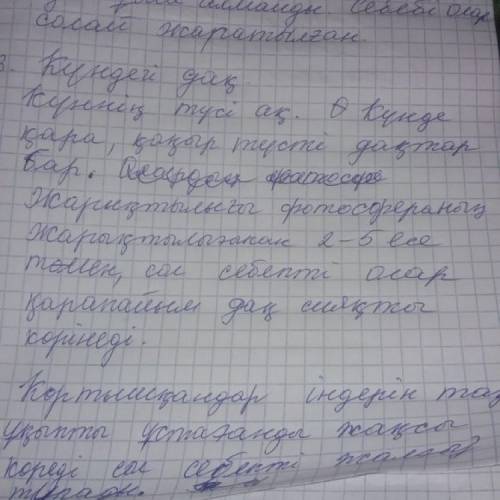 алмайды. Себебі олар
солай жаратылған.
3. Күндегі дақ.
Күннің түсі ақ. Ө Күнде
қара, қоңыр түсті дақтар
бар.
Жарықтылығы фотосфераның
жарықтылығынан 2-5 есе
төмен, сол себепті олар
қарапайым дақ сияқты
көрінеді.
Көртышқандар індерін таз
ұқыпты ұстағанды жақсы
көреді сол себепті